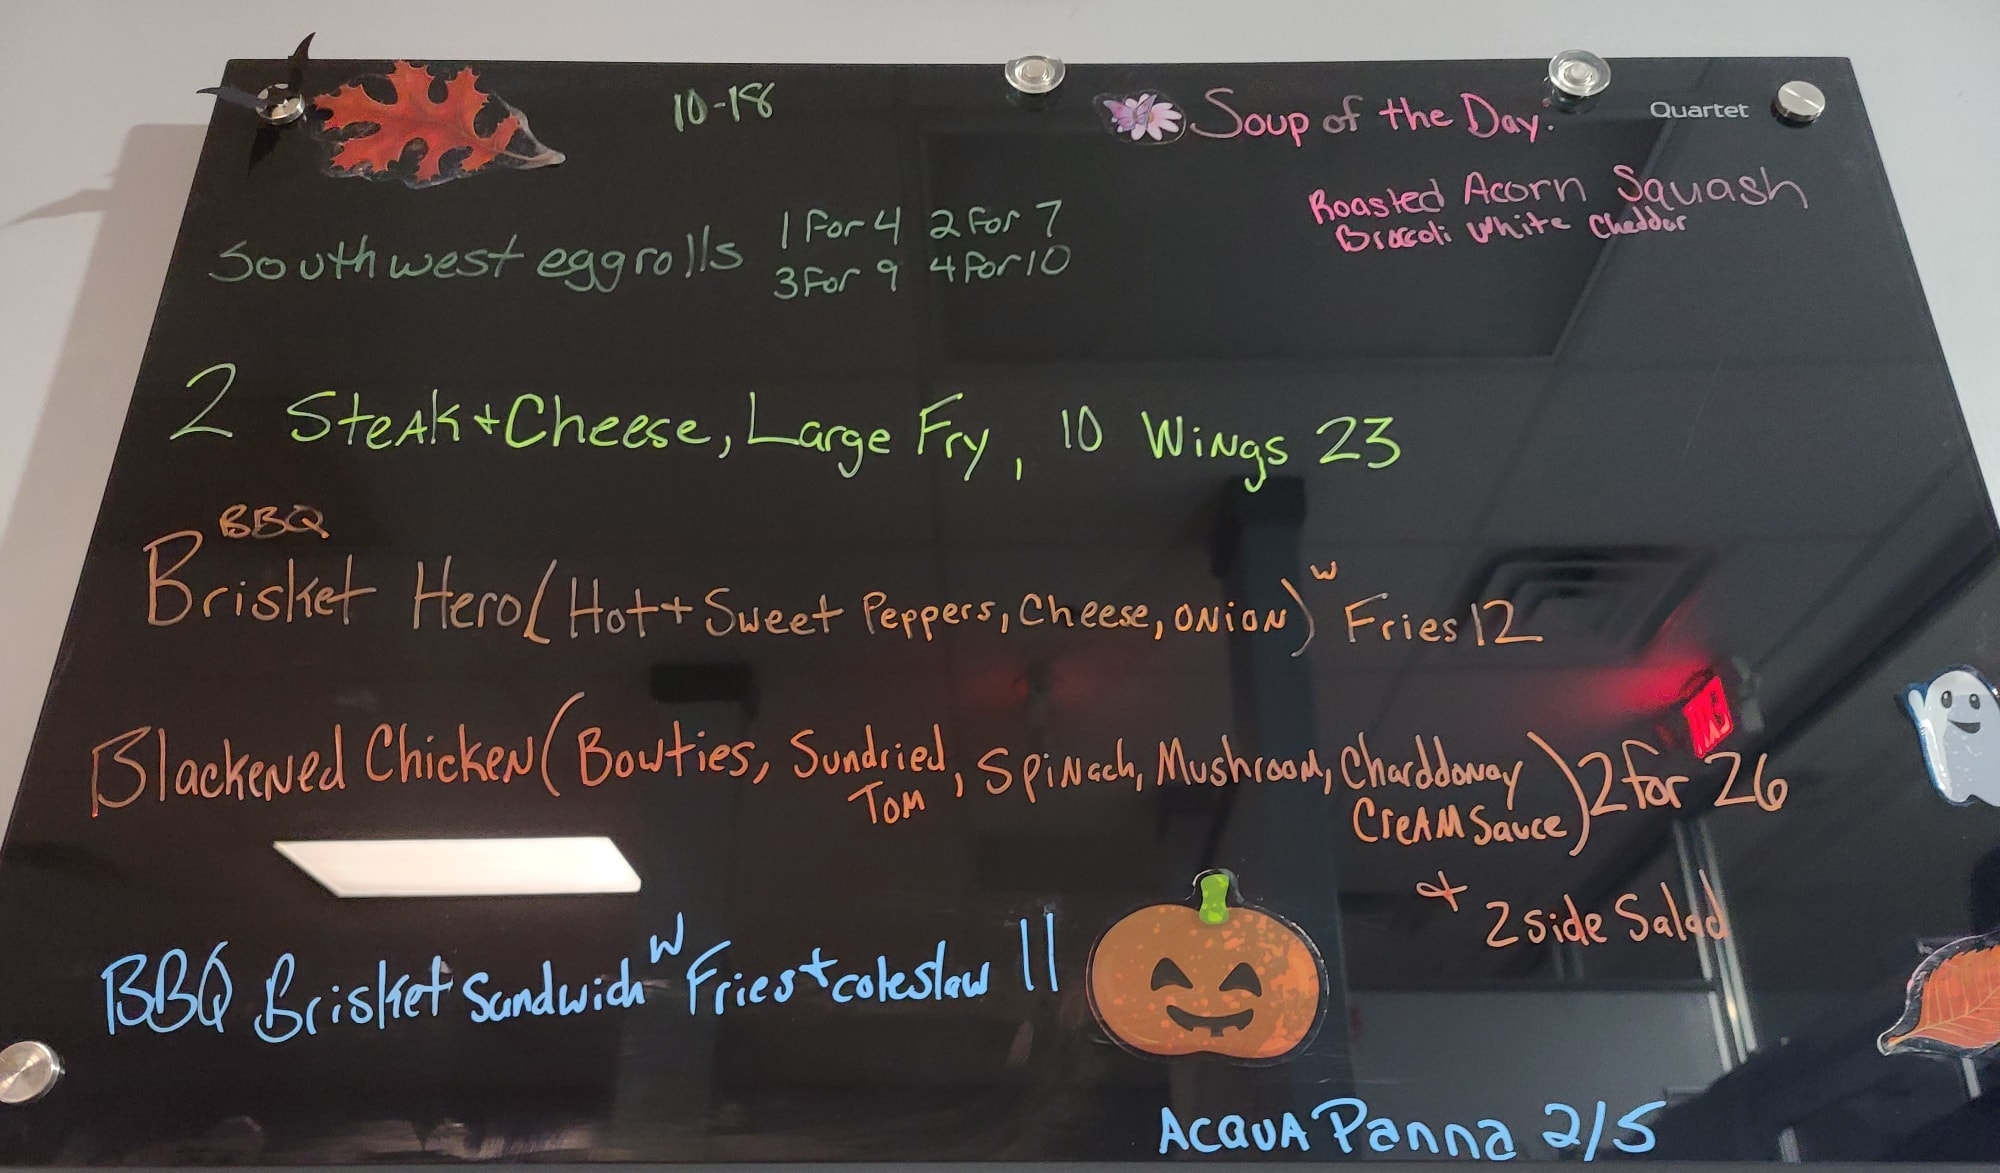 10-18
Soup of the Day:
Quartet
Roasted Acorn Squash
Broccoli White Cheddar
Southwest eggrolls 1 For 4 2 For 7
3 For 9 4 For 10
2 Steak + Cheese, Large Fry, 10 Wings 23
BBQ
Brisket Hero (Hot + Sweet Peppers, Cheese, Onion) w Fries 12
Blackened Chicken (Bowties, Sundried Tom, Spinach, Mushroom, Charddonay Cream Sauce) 2 for 26
+ 2 side Salad
BBQ Brisket Sandwich w Fries + coleslaw 11
Acqua Panna 2/5